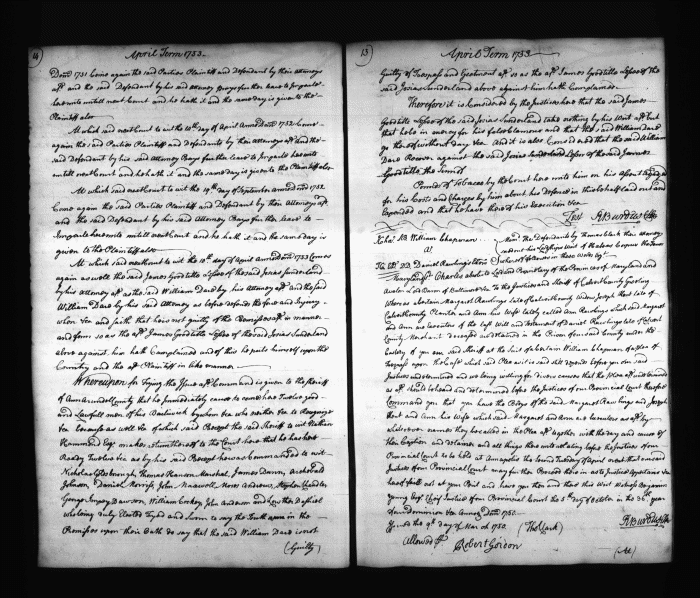 April Term 1733
Dom 1731 Come again the said Parties Plaintiff and Defendant by their Attorneys
aft and the said Defendant by his said Attorney Prays further leave to Imparle
hereunto until next Court and he hath it and the same day is given to the
Plaintiff also
At which said next Court to wit the day of April Annoq Dom 1732 Come
again the said Parties Plaintiff and Defendant by their Attorneys aft and the
said Defendant by his said Attorney Prays further leave to Imparle hereunto
until next Court and he hath it and the same day is given to the Plaintiff also
At which said next Court to wit the 19th day of September Annoq Dom 1732
Come again the said Parties Plaintiff and Defendant by their Attorneys aft
and the said Defendant by his said Attorney Prays further leave to
Imparle hereunto until next Court and he hath it and the same day is
given to the Plaintiff also
At which said next Court to wit the 10th day of April Annoq Dom 1733 Comes
again as well the said James Goodtitle Lessee of the said Josias Sunderland
by his Attorney aft as the said William Dare by his Attorney aft and the said
William Dare by his said Attorney as before defends the force and Injury
when &ca and saith that he is not guilty of the Premisses aft in manner
and form so as the aft James Goodtitle Lessee of the said Josias Sunderland
above against him hath Complained and of this he puts himself upon the
Country and the aft Plaintiff in like manner
Whereupon for Trying the Issue aft Command is given to the Sheriff
of Ann Arundel County that he Immediately causes to come here Twelve good
and Lawfull men of his Bailiwick by whom &ca who neither &ca to Recognize
&ca because as well &ca of which said Precept the said Sheriff to wit
Hammond Esqr makes return thereof to the Court here that he has here
Ready Twelve &ca as by his said Precept he was Commanded to wit
Nicholas Thomas Marshal, James Dorson,
Johnson, Daniel John Maxwell, Moses Andrews, Stephen
George William John Anderson and
who being duly Elected Tryed and Sworn to say the Truth upon in the
Premisses upon their Oath do say that the said William Dare is not
(Guilty)
13
April Term 1733
Guilty of Trespass and Ejectment aft so as the aft James Goodtitle Lessee of the
said Josias Sunderland above against him hath Complained.
Therefore it is Considered by the Justices here that the said James
Goodtitle Lessee of the said Josias Sunderland take nothing by his Writ aft but
that he be in mercy for his false Clamour and that the said William Dare
go thereof without day &ca And it is also Considered that the said William
Dare Recover against the said Josias Sunderland Lessor of the said James
Goodtitle the Sum of
Pounds of Tobacco by the Court here unto him on his Assent Adjudged
for his Costs and Charges by him about his Defence in this behalf laid out and
Expended and that he have thereof his Execution &ca
Test R Burdus Clk
William Chapman
Mem. The Defendants by Thomas Clark their Attorney
Writ of Habeas Corpus the Tenor
whereof follows in these Words to wit
Daniel Rawlings
Maryland ss Charles absolute Lord and Proprietary of the Province of Maryland and
Avalon Lord Baron of Baltimore &ca To the Justices and Sheriff of Calvert County Greeting
Whereas a certain Margaret Rawlings late of Calvert County Widow Joseph Hunt late of
Calvert County Planter and Ann his Wife lately called Ann Rawlings which said Margaret
and Ann are Executors of the Last Will and Testament of Daniel Rawlings late of Calvert
County Merchant deceased are detained in the Prison of our said County under the
Custody of you our said Sheriff at the Suit of a certain William Chapman of a Plea of
Trespass upon the Case which said Plea as it is said still depends before you our said
Justices undetermined and we being willing for divers causes that the Plea aft undetermined
as aft should be heard and determined before the Justices of our Provincial Court therefore
Command you that you have the Bodys of the said Margaret Rawlings and Joseph
Hunt and Ann his Wife which said Margaret and Ann are Executors as aft by
whatsoever names they be called in the Plea aft together with the day and cause of
their Caption and detainer and all things thereunto relating before the Justices of our
Provincial Court to be held at Annapolis the second Tuesday of April next that our said
Justices of our Provincial Court may further Proceed therein as to Justice Appertains &ca
hereof fail not at your Peril and have you then and there this Writ Witness Benjamin
Young Esqr Chief Justice of our Provincial Court the 5th day of October in the year
of our dominion &ca Annoq Dom 1730.
Issued the 9th day of March 1730 (Tho Clark)
R Burdus Clk
Allowed Pr
Robert Gordon
(At)